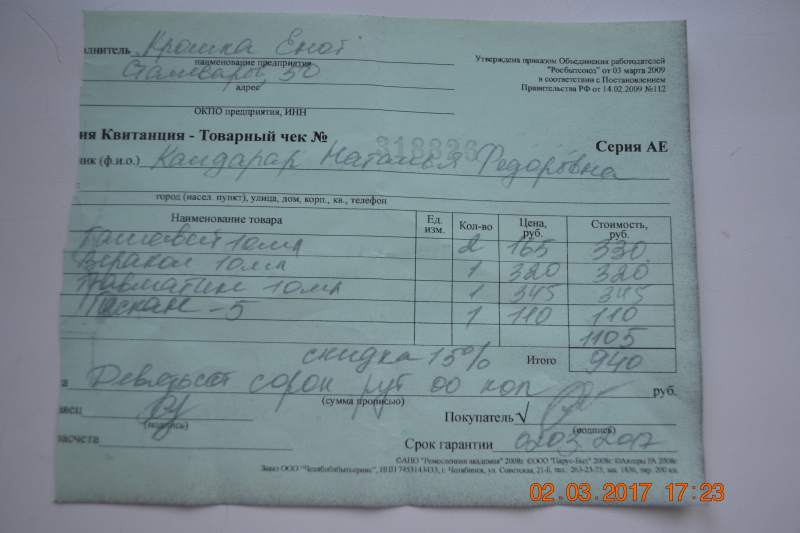 олнитель Крошка Енот
наименование предприятия
Сталеваров, 50
адрес
ОКПО предприятия, ИНН
Утверждена приказом Объединения работодателей
"Росбытсоюз" от 03 марта 2009
в соответствии с Постановлением
Правительства РФ от 14.02.2009 №112
ия Квитанция - Товарный чек № 318826
Серия АЕ
чик (ф.и.о.) Кандарар Наталья Федоровна
город (насел. пункт), улица, дом, корп., кв., телефон
Наименование товара Ед. изм. Кол-во Цена, руб. Стоимость, руб.
Гамовет 10мл 2 165 330
Веракол 10мл 1 320 320
Травматин 10мл 1 345 345
1 110 110
1105
скидка 15% Итого 940
а Девятьсот сорок руб 00 коп руб.
(сумма прописью)
авец
(подпись)
Покупатель √
(подпись)
асчета
Срок гарантии 02.03.2017
©АНО "Ремесленная академия" 2008г. ©ООО "Парус-Быт" 2008г. ©Авторы РА 2008г.
Заказ ООО "Челябоблбытсервис", ИНН 7453143433, г. Челябинск, ул. Советская, 21-б, тел.: 263-23-75, зак. 1836, тир. 200 кн.
02.03.2017 17:23